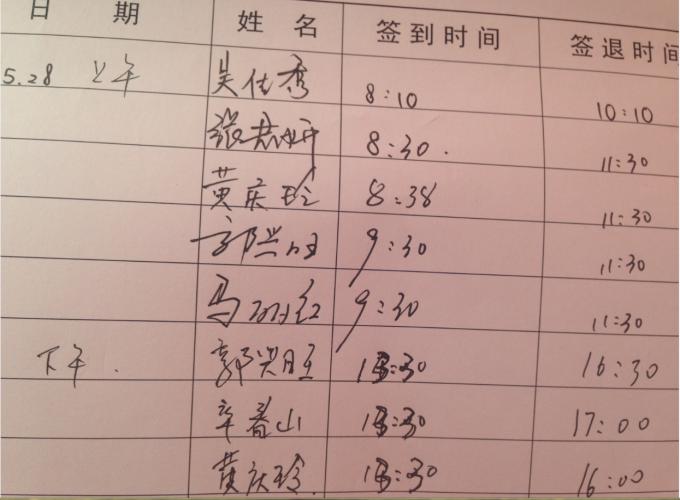 日期 姓名 签到时间 签退时间
5.28 上午 吴佳秀 8:10 10:10
张 8:30. 11:30
黄庆玲 8:38 11:30
郭兴旺 9:30 11:30
马 红 9:30 11:30
下午. 郭兴旺 :30 16:30
辛春山 :30 17:00
黄庆玲. :30 16:00